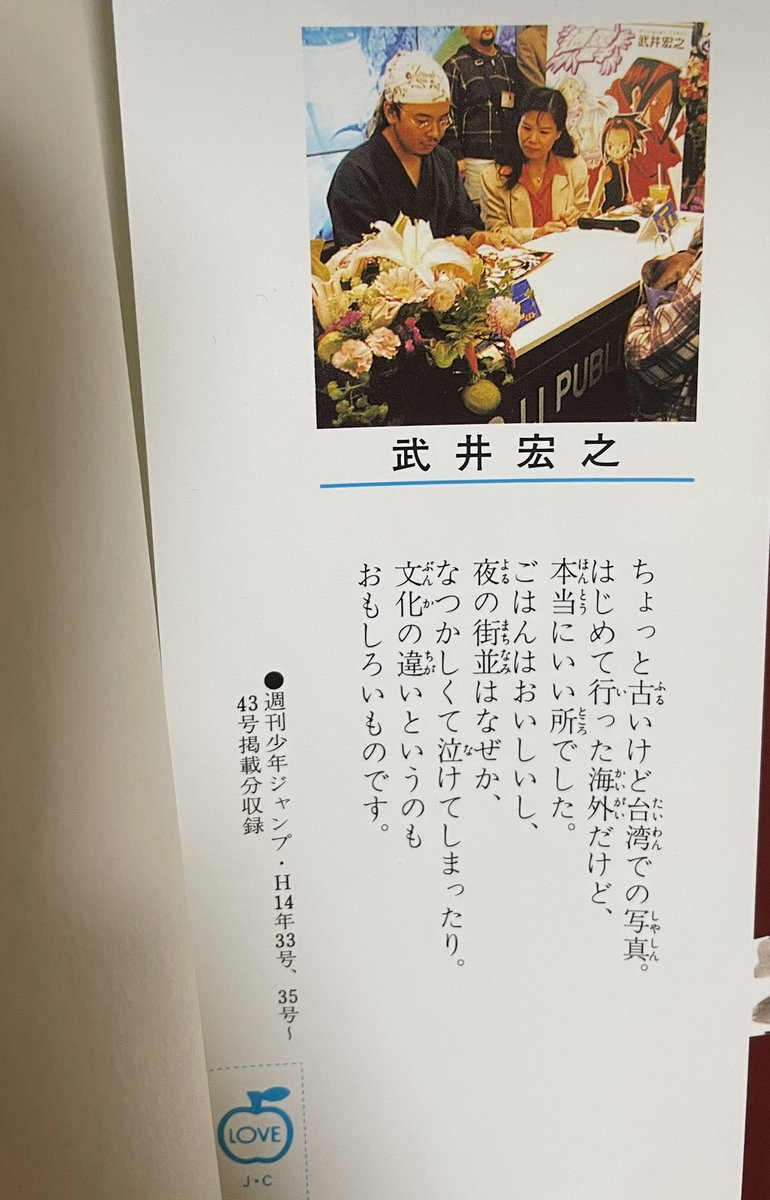 武井宏之
LI PUBL
武井宏之
ちょっと古いけど台湾での写真。
はじめて行った海外だけど、
本当にいい所でした。
ごはんはおいしいし、
夜の街並はなぜか、
なつかしくて泣けてしまったり。
文化の違いというのも
おもしろいものです。
●週刊少年ジャンプ・H14年33号、35号〜
43号掲載分収録
LOVE
J・C